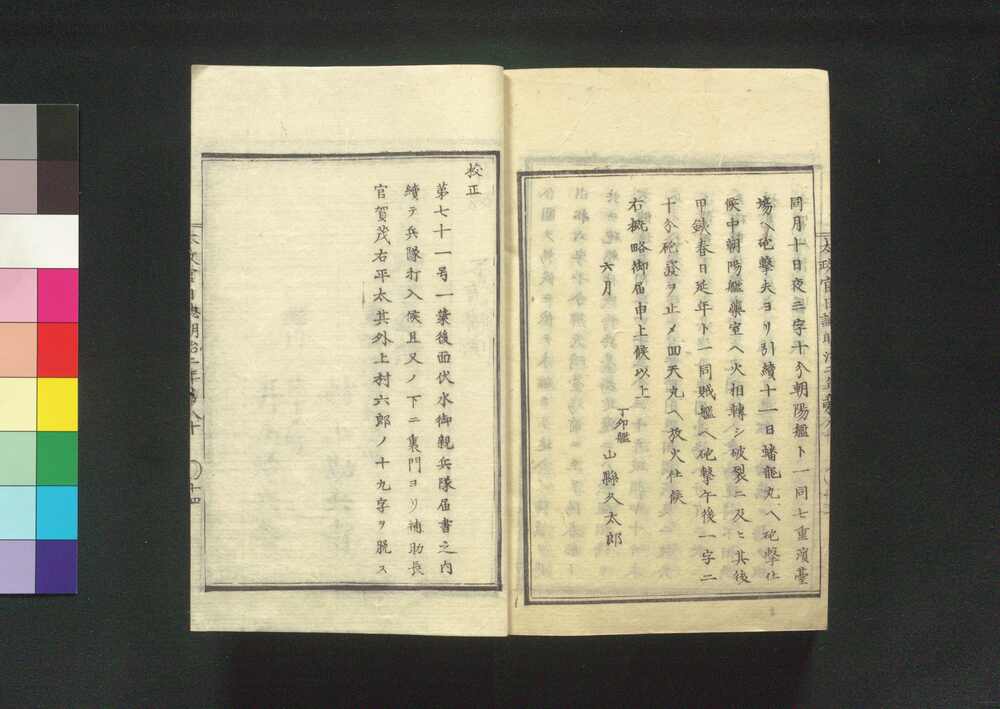 同月十日夜三字十分朝陽艦ト一同七重濱臺
場ヘ砲擊夫ヨリ引續十一日蟠龍丸ヘ砲擊仕
候中朝陽艦藥室ヘ火相轉シ破裂ニ及ヒ其後
甲鉄春日延年ト一同賊艦ヘ砲擊午後一字二
十分砲發ヲ止メ回天丸ヘ放火仕候
右概略御届申上候以上
六月
丁卯艦 山縣久太郎
校正
第七十一号一葉後面伏水御親兵隊届書之内
續テ兵隊打入候且又ノ下ニ裏門ヨリ補助長
官賀茂右平太其外上村六郎ノ十九字ヲ脫ス
太政官日誌明治二年第八十 十四